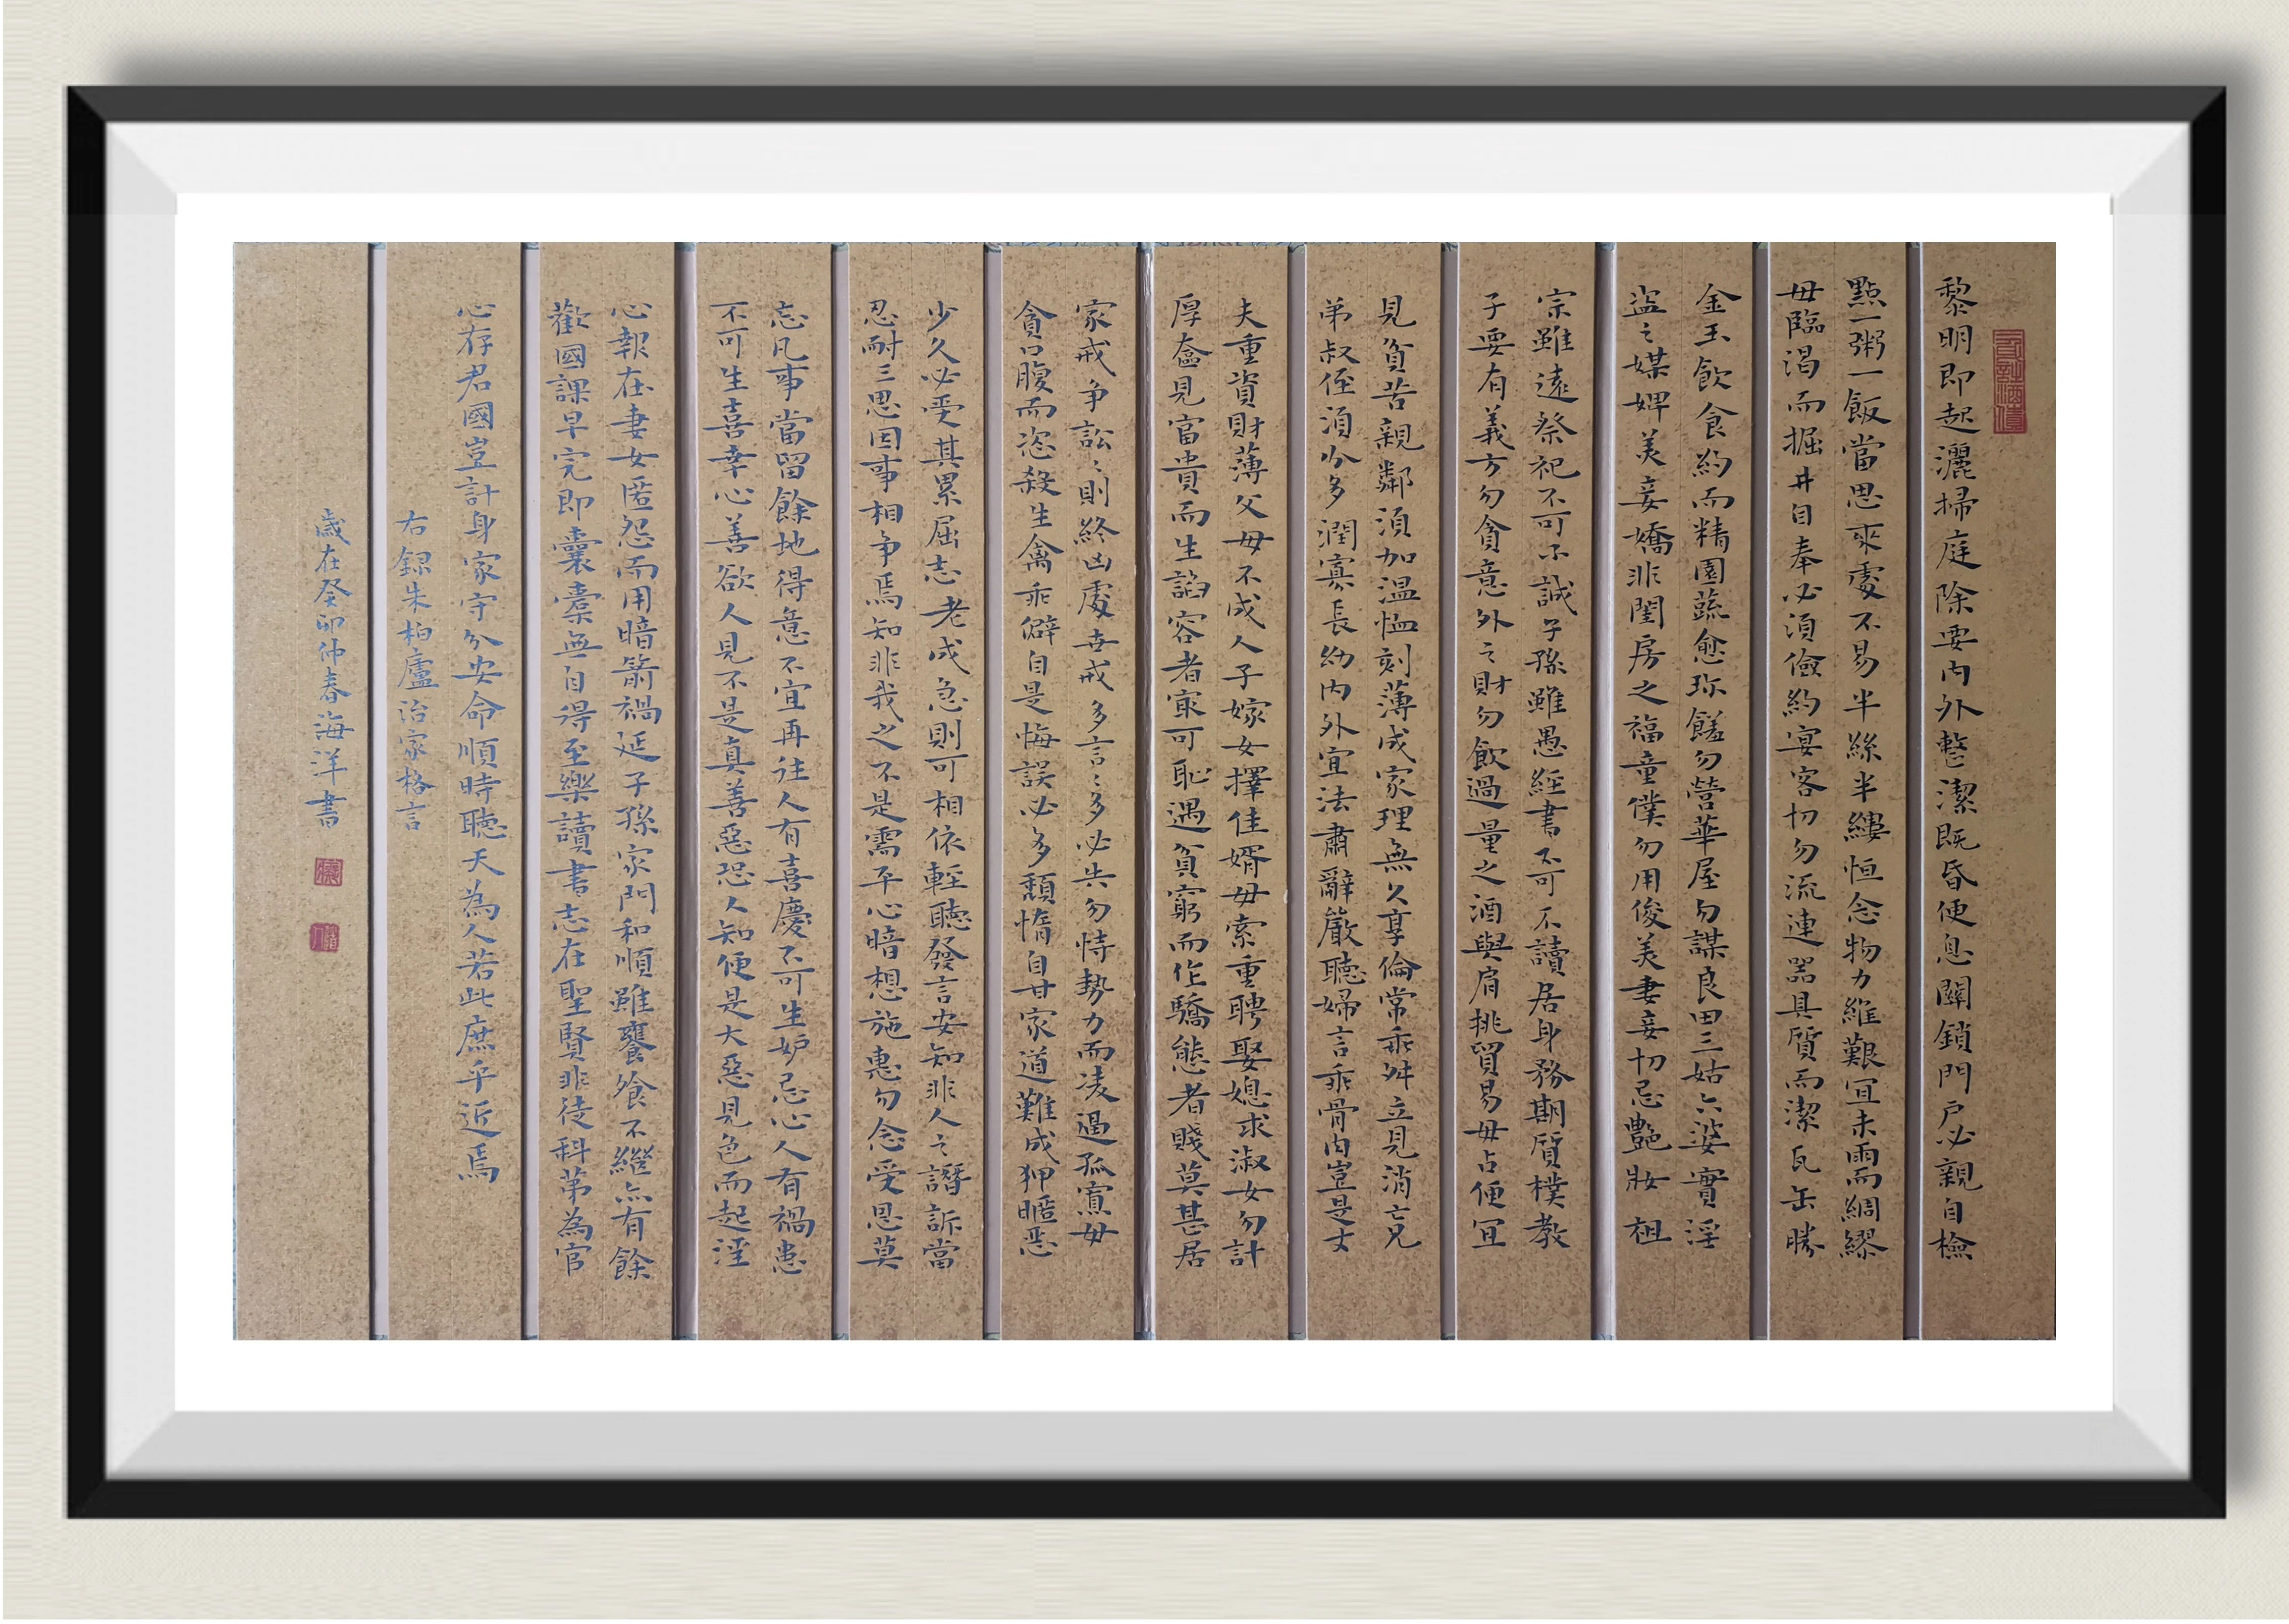 黎明即起灑掃庭除要內外整潔既昏便息關鎖門戶必親自檢
點一粥一飯當思來處不易半絲半縷恒念物力維艱宜未雨而綢繆
毋臨渴而掘井自奉必須儉約宴客切勿流連器具質而潔瓦缶勝
金玉飲食約而精園蔬愈珎饈勿營華屋勿謀良田三姑六婆實淫
盜之媒婢美妾嬌非閨房之福童僕勿用俊美妻妾切忌艷妝祖
宗雖遠祭祀不可不誠子孫雖愚經書不可不讀居身務期質樸教
子要有義方勿貪意外之財勿飲過量之酒與肩挑貿易毋占便宜
見貧苦親鄰須加溫恤刻薄成家理無久享倫常乖舛立見消亡兄
弟叔侄須分多潤寡長幼內外宜法肅辭嚴聽婦言乖骨肉豈是丈
夫重資財薄父母不成人子嫁女擇佳婿毋索重聘娶媳求淑女勿計
厚奩見富貴而生諂容者寂可恥遇貧窮而作驕態者賤莫甚居
家戒爭訟訟則終凶處世戒多言言多必失勿恃勢力而凌逼孤寡毋
貪口腹而恣殺生禽乖僻自是悔誤必多頹惰自甘家道難成狎暱惡
少久必受其累屈志老成急則可相依輕聽發言安知非人之譖訴當
忍耐三思因事相爭焉知非我之不是需平心暗想施惠勿念受恩莫
忘凡事當留餘地得意不宜再往人有喜慶不可生妒忌心人有禍患
不可生喜幸心善欲人見不是真善惡恐人知便是大惡見色而起淫
心報在妻女匿怨而用暗箭禍延子孫家門和順雖饔飧不繼亦有餘
歡國課早完即囊橐無自得至樂讀書志在聖賢非徒科第為官
心存君國豈計身家守分安命順時聽天為人若此庶乎近焉
右錄朱柏廬治家格言
歲在癸卯仲春海洋書